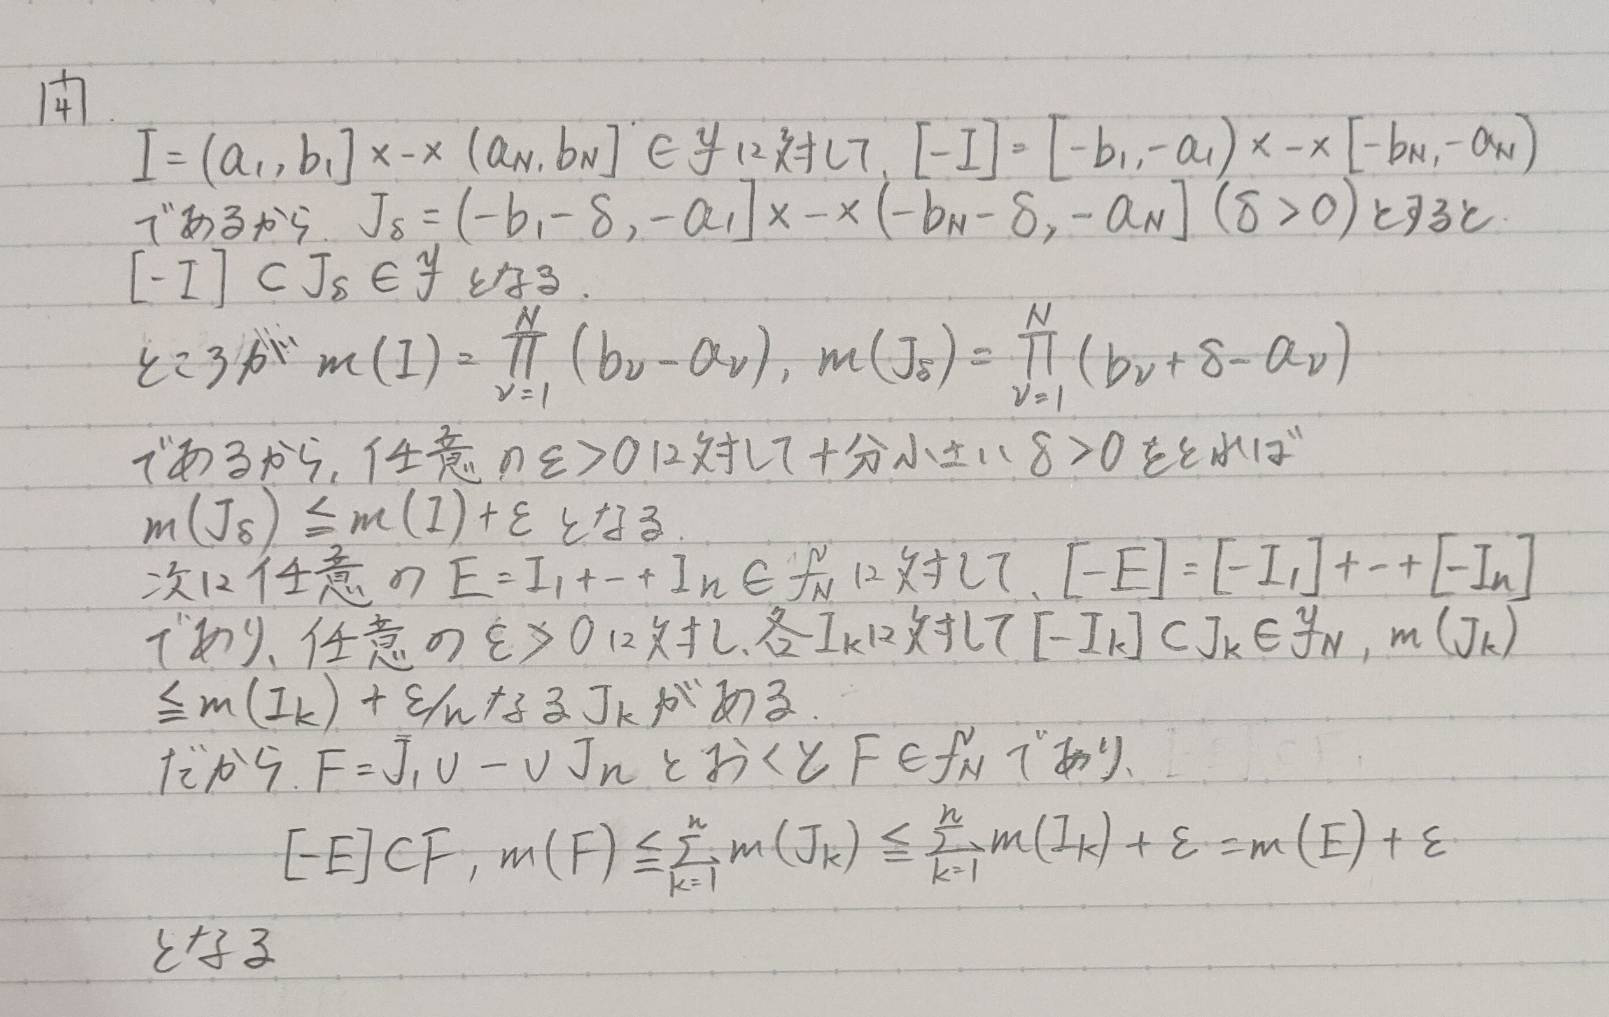 付4.
I = (a₁, b₁] × - × (a_N, b_N] ∈ 𝒥 に対して、[-I] = [-b₁, -a₁) × - × [-b_N, -a_N)
であるから、J_δ = (-b₁-δ, -a₁] × - × (-b_N-δ, -a_N] (δ>0) とすると、
[-I] ⊂ J_δ ∈ 𝒥 となる.
ところが m(I) = ∏_{ν=1}^{N} (b_ν - a_ν), m(J_δ) = ∏_{ν=1}^{N} (b_ν + δ - a_ν)
であるから、任意の ε>0 に対して十分小さい δ>0 をとれば
m(J_δ) ≦ m(I) + ε となる.
次に任意の E = I₁ + - + I_n ∈ 𝒥_N に対して、[-E] = [-I₁] + - + [-I_n]
であり、任意の ε>0 に対し、各 I_k に対して [-I_k] ⊂ J_k ∈ 𝒥_N, m(J_k)
≦ m(I_k) + ε/n なる J_k がある.
だから、F = J₁ ∪ - ∪ J_n とおくと F ∈ 𝒥_N であり、
[-E] ⊂ F, m(F) ≦ ∑_{k=1}^{n} m(J_k) ≦ ∑_{k=1}^{n} m(I_k) + ε = m(E) + ε
となる